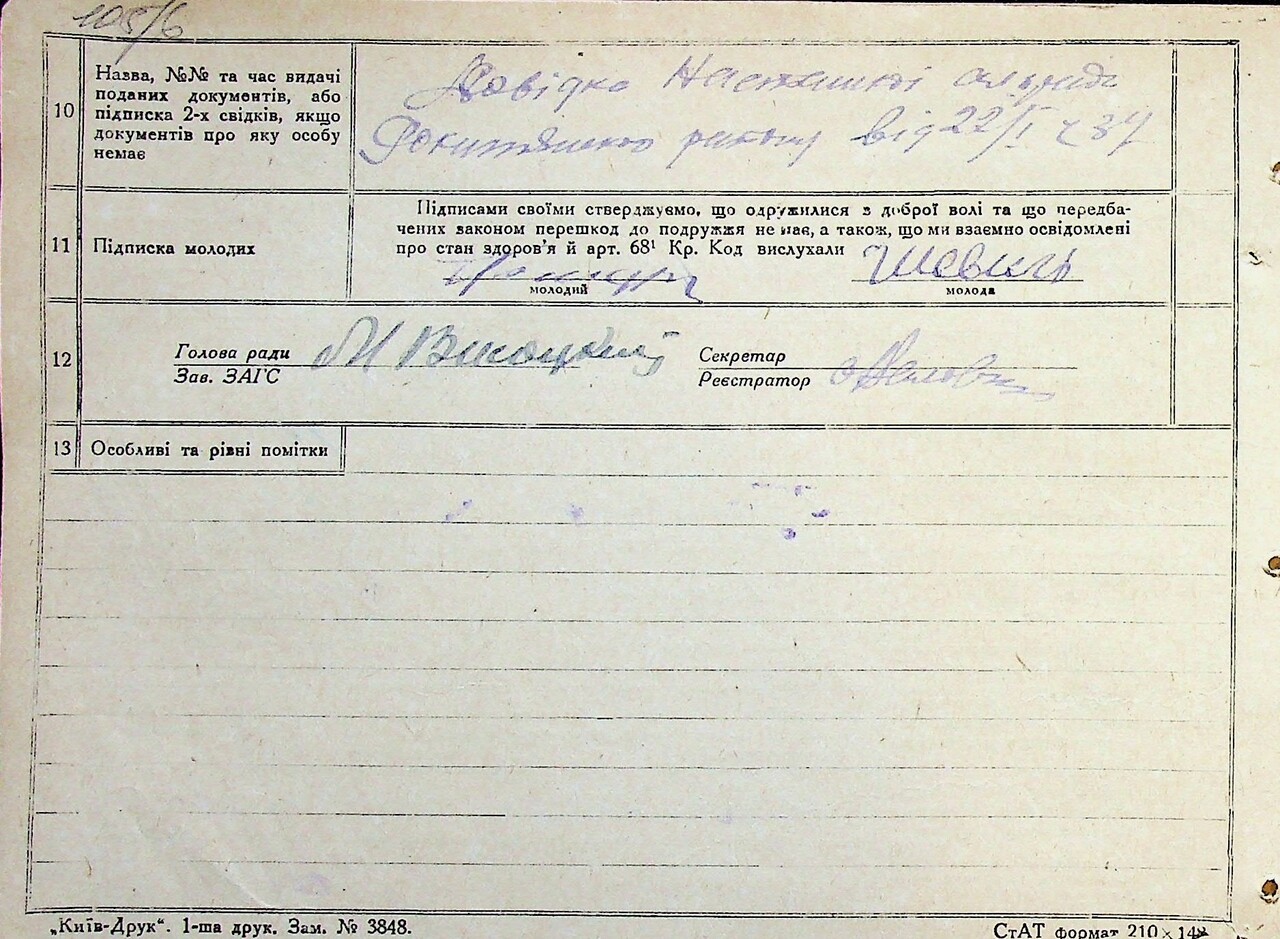 105/6
10
Назва, №№ та час видачі
поданих документів, або
підписка 2-х свідків, якщо
документів про яку особу
немає
Довідка Насташської сільради
Рокитянського району від 22/I
11
Підписка молодих
Підписами своїми стверджуємо, що одружилися з доброї волі та що передба-
чених законом перешкод до подружжя немає, а також, що ми взаємно освідомлені
про стан здоров'я й арт. 68¹ Кр. Код вислухали
молодий
молода
12
Голова ради
Зав. ЗАГС
М Висоцький
Секретар
Реєстратор
13
Особливі та рівні помітки
„Київ-Друк“. 1-ша друк. Зам. № 3848.
СтАТ формат 210 × 148